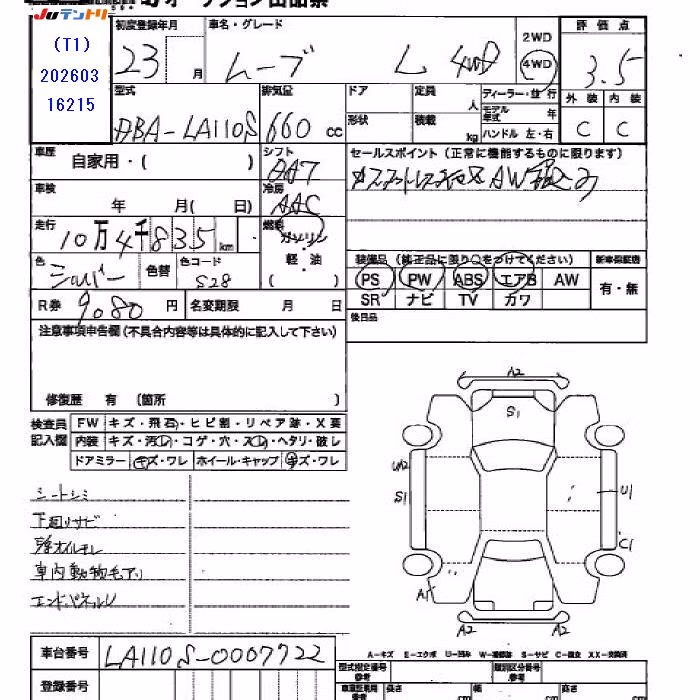 Juテントリ
オークション出品票
(T1)
202603
16215
初度登録年月
23 月
車名・グレード
ムーブ L 4WD
2WD
4WD
評価点
3.5
外装 内装
C C
型式
DBA-LA110S
排気量
660 cc
ドア
形状
定員 人
積載 kg
ディーラー・並行
モデル年式 年
ハンドル 左・右
車歴
自家用・( )
シフト
AAT
冷房
AAC
車検
年 月( 日)
走行
10万4千835 km
燃料
ガソリン
軽・油
セールスポイント(正常に機能するものに限ります)
色
シルバー
色替
色コード
S28
装備品(純正品に限り○をつけてください)
新車保証書
PS PW ABS エアB AW
SR ナビ TV カワ
有・無
R券 9080 円
名変期限 月 日
後日品
注意事項申告欄(不具合内容等は具体的に記入して下さい)
修復歴 有 (箇所 )
検査員記入欄
FW キズ・飛石・ヒビ割・リペア跡・X要
内装 キズ・汚レ・コゲ・穴・スレ・ヘタリ・破レ
ドアミラー キズ・ワレ ホイール・キャップ キズ・ワレ
シートシミ
下廻りサビ
オイルモレ
車内動物毛アリ
エンドパネルU
A2
S1
S1
U1
C1
A1
A2
A2
A-キズ E-エクボ U-凹み W-補修跡 S-サビ C-腐食 XX-交換済
車台番号
LA110S-0007722
登録番号
型式指定番号
参考
類別区分番号
参考
長さ cm
幅 cm
高さ cm